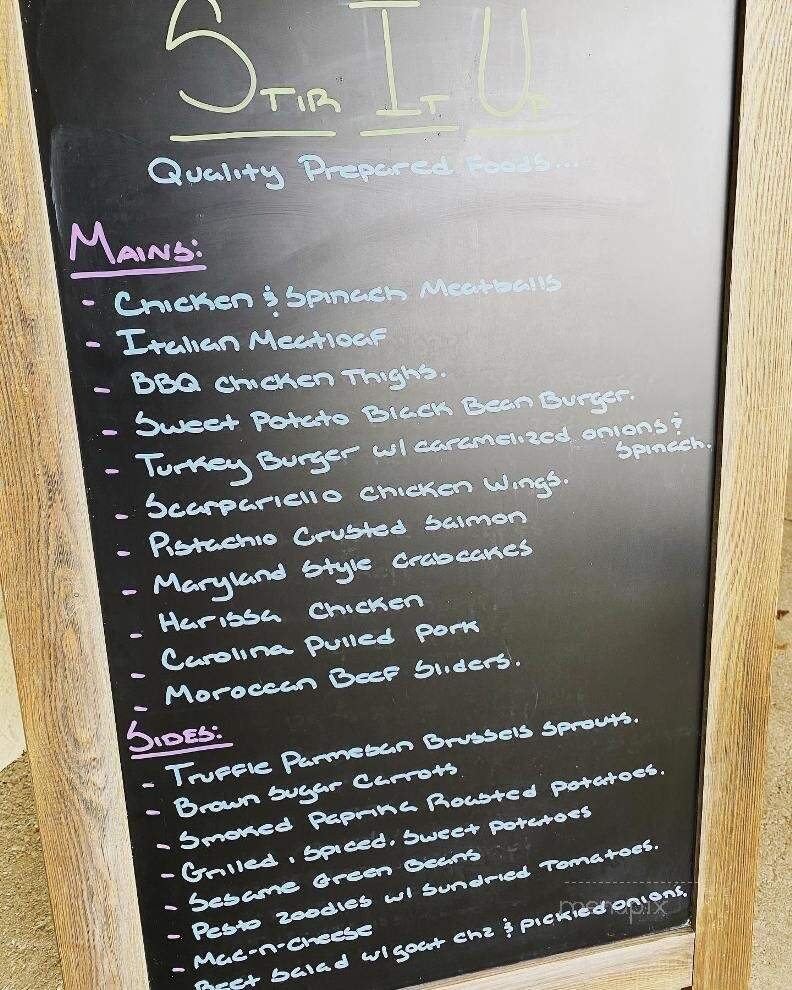 Stir It Up
Quality Prepared Foods...
Mains:
- Chicken & Spinach Meatballs
- Italian Meatloaf
- BBQ Chicken Thighs.
- Sweet Potato Black Bean Burger.
- Turkey Burger w/ caramelized onions &
Spinach.
- Scarpariello Chicken Wings.
- Pistachio Crusted Salmon
- Maryland Style Crabcakes
- Harissa Chicken
- Carolina Pulled Pork
- Moroccan Beef Sliders.
Sides:
- Truffle Parmesan Brussels Sprouts.
- Brown Sugar Carrots
- Smoked Paprika Roasted Potatoes.
- Grilled, Spiced, Sweet Potatoes
- Sesame Green Beans
- Pesto Zoodles w/ Sundried Tomatoes.
- Mac-n-Cheese
- Beet Salad w/ goat chz & pickled onions.
menupix